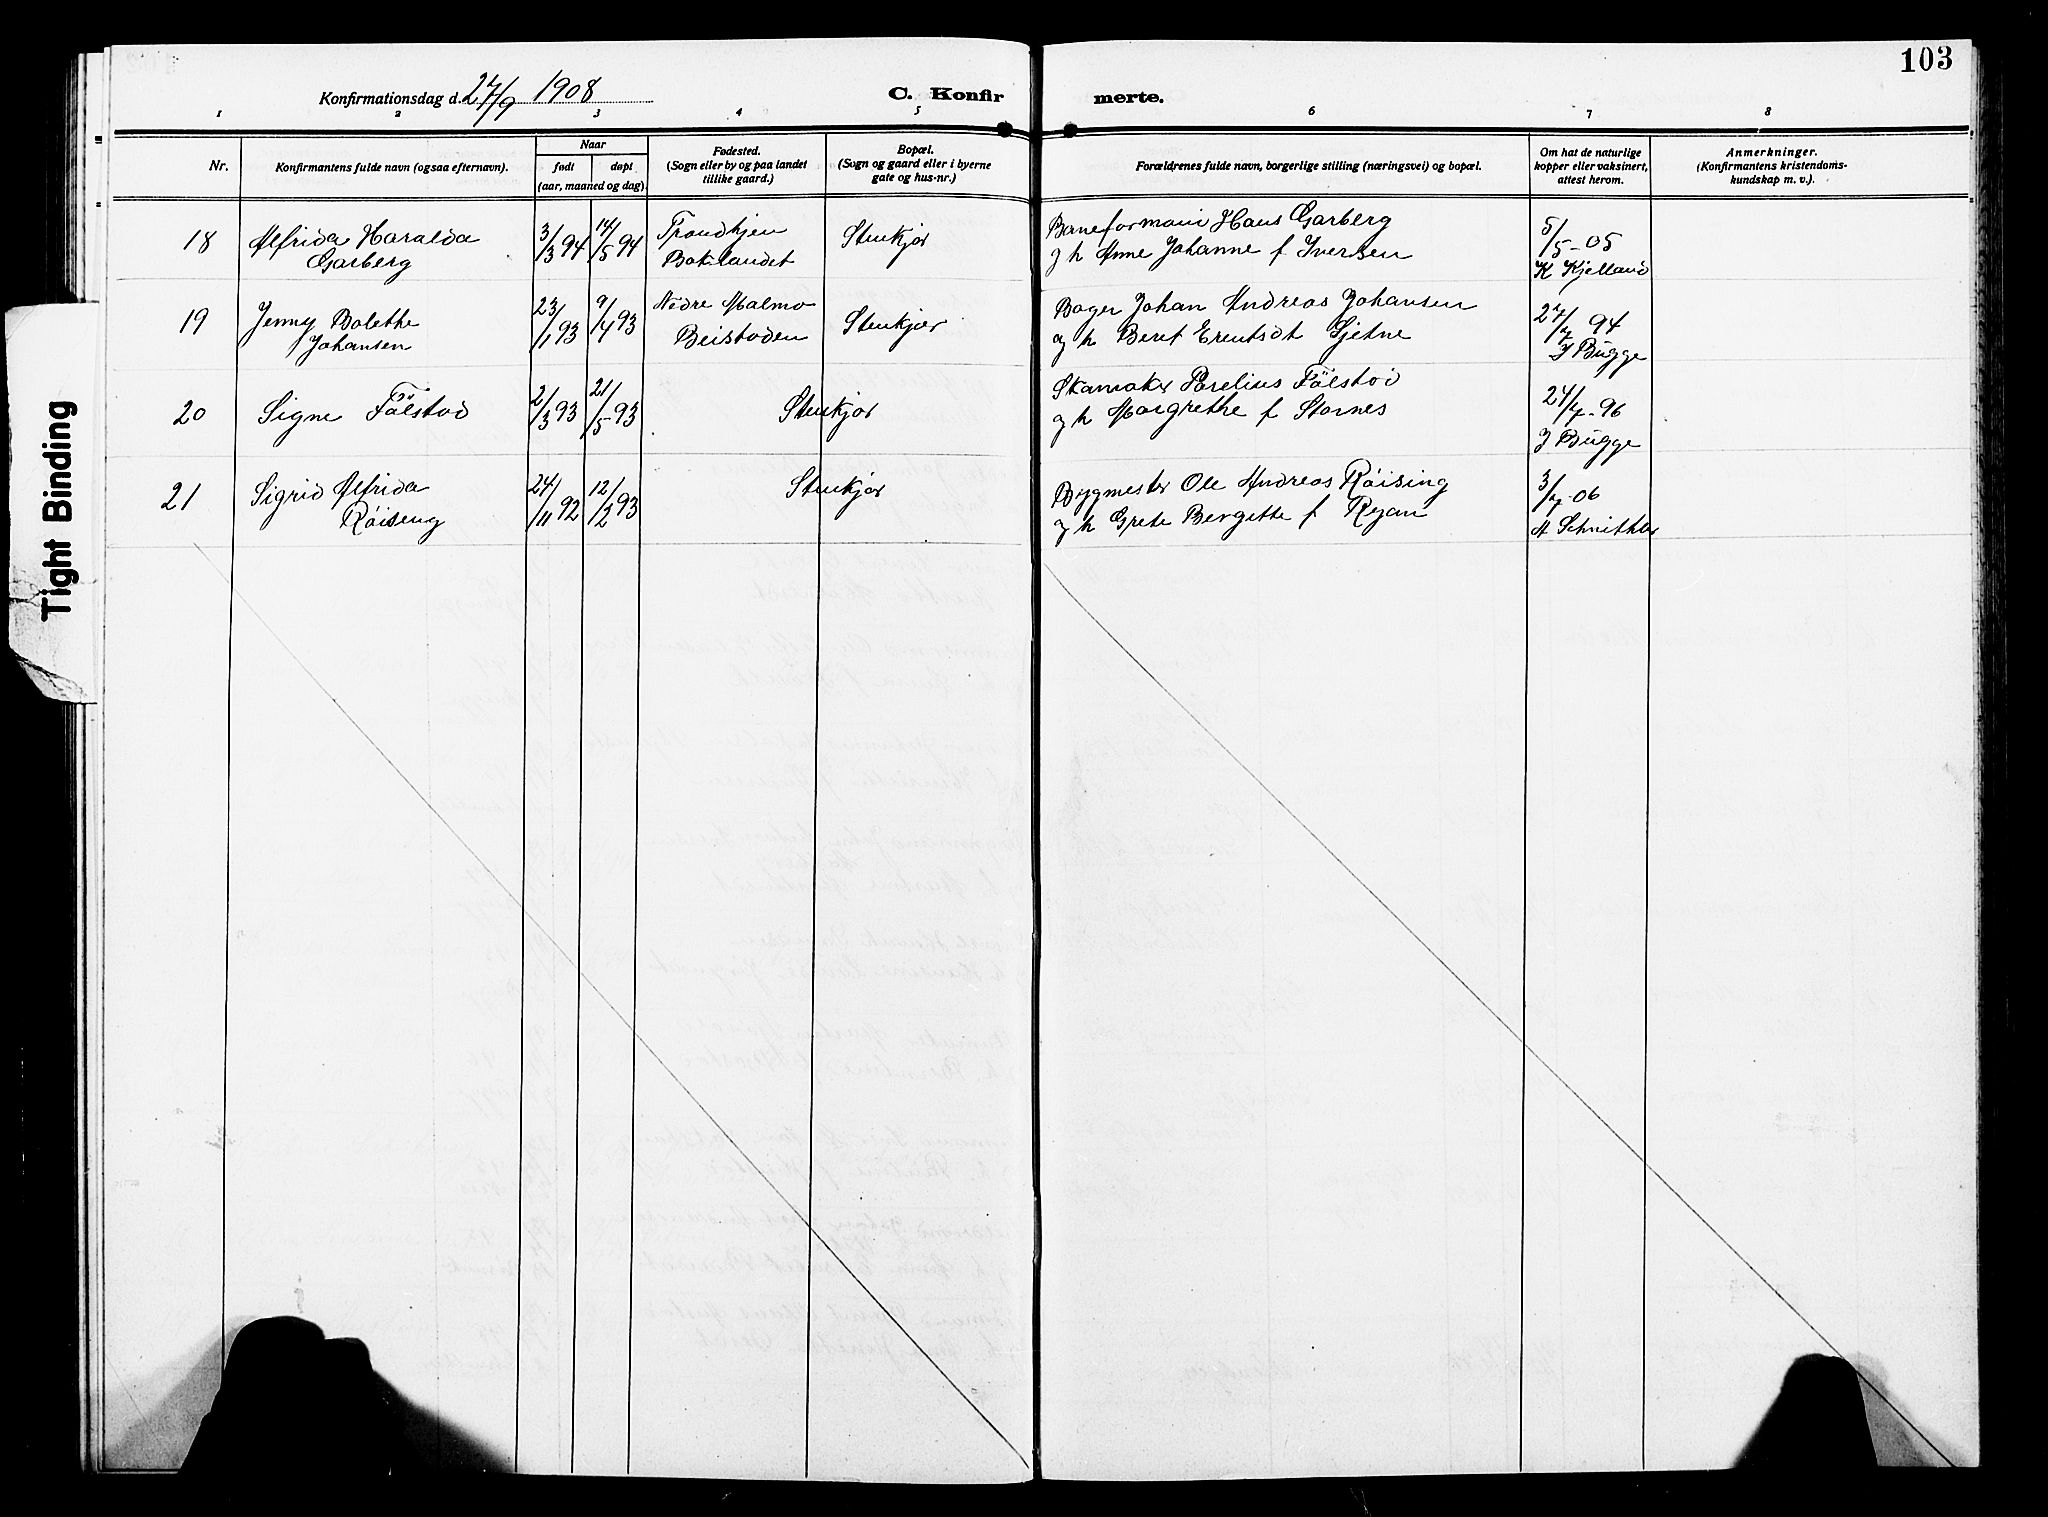 103
Konfirmationsdag d. 27/9 1908
C. Konfir
merte.
1 2 3 4 5 6 7 8
Nr.
Konfirmantens fulde navn (ogsaa efternavn).
Naar
født
døpt
(aar, maaned og dag).
Fødested.
(Sogn eller by og paa landet
tillike gaard.)
Bopæl.
(Sogn og gaard eller i byerne
gate og hus-nr.)
Forældrenes fulde navn, borgerlige stilling (næringsvei) og bopæl.
Om hat de naturlige
kopper eller vaksinert,
attest herom.
Anmerkninger.
(Konfirmantens kristendoms-
kundskap m. v.).
18 Alfrida Haralda 3/3 94 14/5 94 Trondhjem Stenkjær Baneformann Hans Garberg 5/5-05
Garberg Baklandet og h Anne Johanne f Iversen K Kjelland
19 Jenny Bolethe 23/1 93 9/4 93 Nedre Malmo Stenkjær Bager Johan Andreas Johansen 27/7 94
Johansen Beistaden og h Beret Erentsdt Gjetne J Bugge
20 Signe Fölstad 2/3 93 21/5 93 Stenkjær Skomaker Parelius Fölstad 24/7-96
og h Margrethe f Stornes J Bugge
21 Sigrid Alfrida 24/11 92 12/2 93 Stenkjær Bygmester Ole Andreas Röising 3/7-06
Röiseng og h Grete Bergitte f Ryan A Schnitkler
Tight Binding